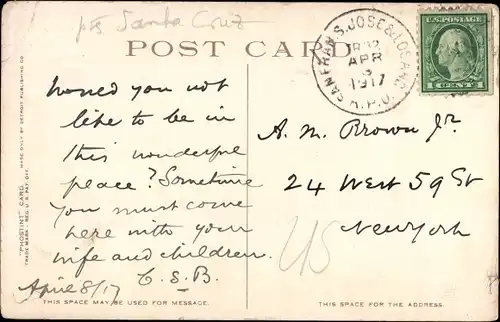 p/s Santa Cruz
POST CARD
SAN FRAN, S. JOSE & LOS ANG.
TR 12
APR
8
1917
R.P.O.
U.S. POSTAGE
1 CENT 1
Would you not
like to be in
this wonderful
place? Sometime
you must come
here with your
wife and children.
C.S.B.
April 8/17
A. M. Brown Jr.
24 West 59 St
New York
US
"PHOSTINT" CARD
MADE ONLY BY DETROIT PUBLISHING CO.
TRADE MARK REG. U.S. PAT. OFF.
THIS SPACE MAY BE USED FOR MESSAGE.
THIS SPACE IS FOR THE ADDRESS.